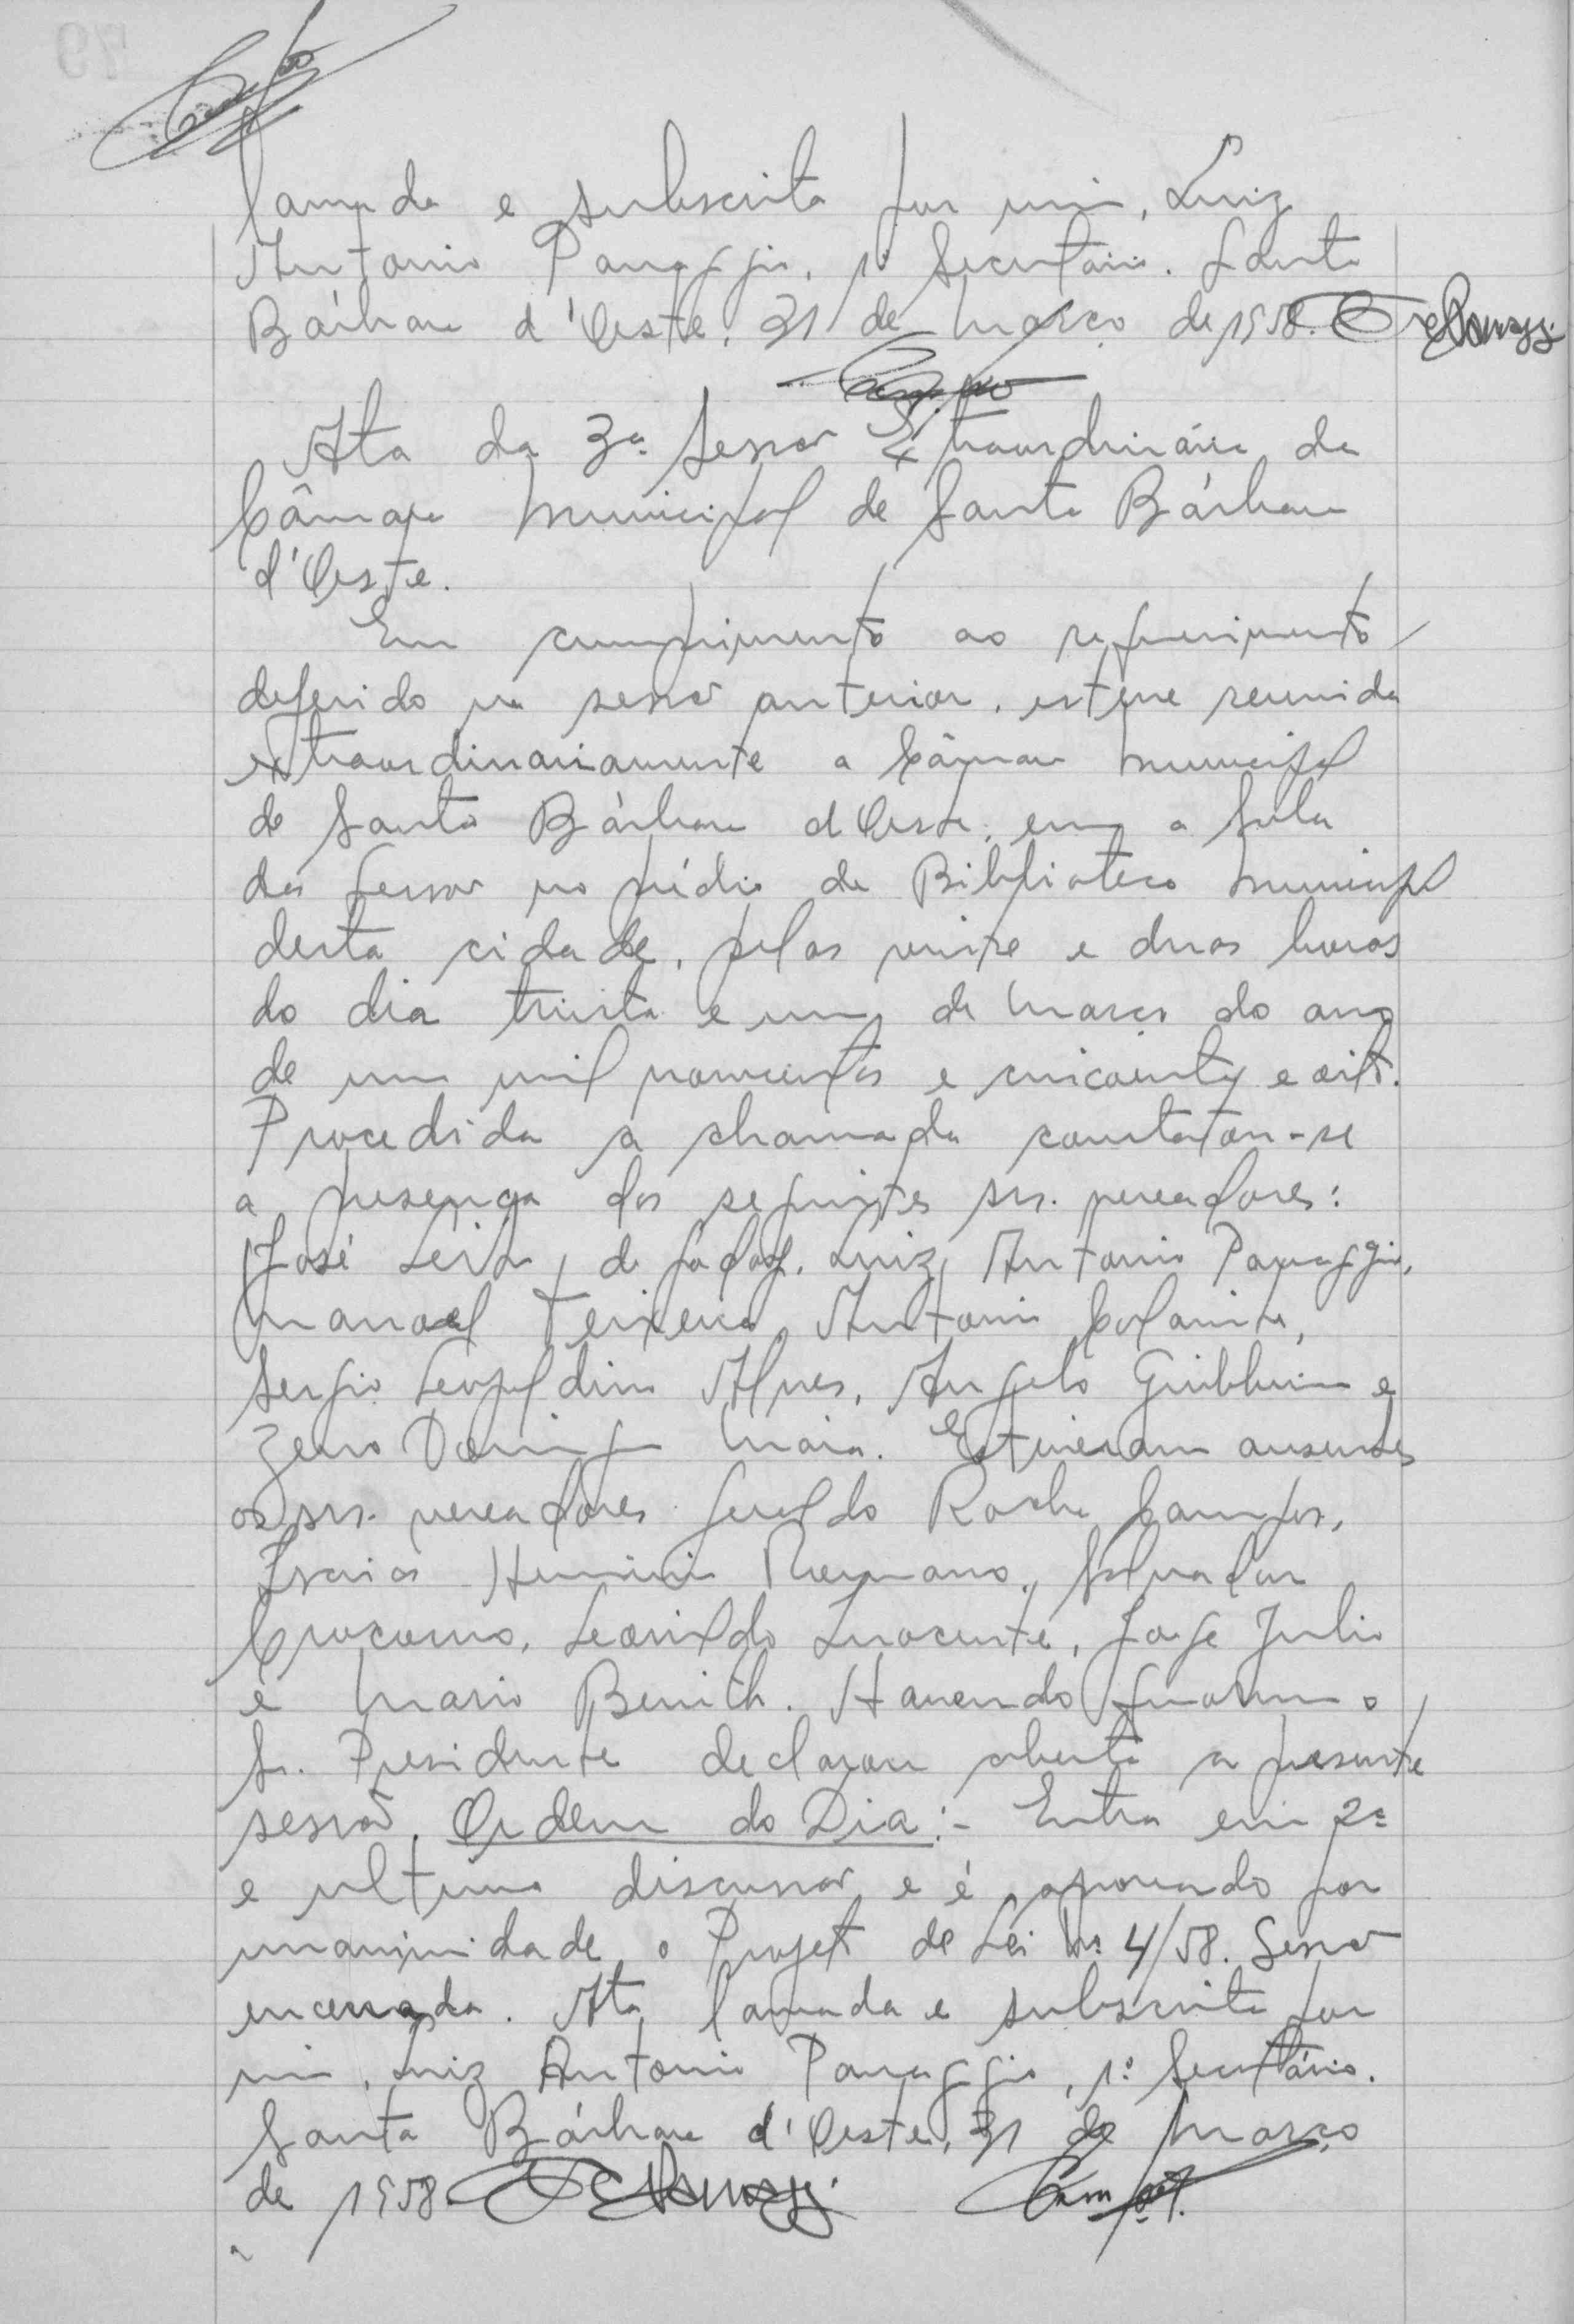 lavrada e subscrita por mim, Luiz
Antonio Panaggio, 1º Secretário. Santa
Bárbara d'Oeste, 31 de Março de 1958.
Ata da 3ª Sessão Extraordinária da
Câmara Municipal de Santa Bárbara
d'Oeste.
Em cumprimento ao requerimento
deferido na sessão anterior, esteve reunida
extraordinariamente a Câmara Municipal
de Santa Bárbara d'Oeste, em a Sala
das Sessões no prédio da Biblioteca Municipal
desta cidade, pelas vinte e duas horas
do dia trinta e um de Março do ano
de um mil novecentos e cincoenta e oito.
Procedida a chamada constatou-se
a presença dos seguintes srs. vereadores:
José Leite de Luiz Antonio Panaggio,
Manoel Teixeira, Antonio
Sergio Leopoldino Alves, Angelo Giubbina e
Zeno Domingos Maia. Estiveram ausentes
os srs. vereadores Geraldo Rocha Campos,
Isaias Romano, Salvador
Leonildo Inocente, Jorge Julio
e Mario Benith. Havendo quorum o
Sr. Presidente declarou aberta a presente
sessão. Ordem do Dia:- Entra em 2ª
e ultima discussão e é aprovado por
unanimidade o Projeto de Lei Nº 4/58. Sessão
encerrada. Ata lavrada e subscrita por
mim, Luiz Antonio Panaggio, 1º Secretário.
Santa Bárbara d'Oeste, 31 de Março
de 1958